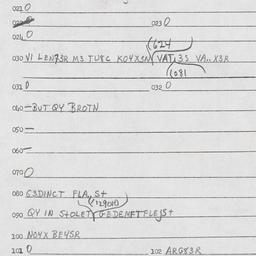 021 0
022 0
023 0
024 0
(624
030 VI LEN73R M3 TU8C KO4X3N VAT.33 VA..X3R
(081
031 0
032 0
040 -BUT QY BROTN
050 -
060 -
070 0
080 G3DINCT FLA,S+
(129010)
090 QY IN STOLET GEDEMFTFLEJS+
100 NO4X BE4SR
101 0
102 ARG83R